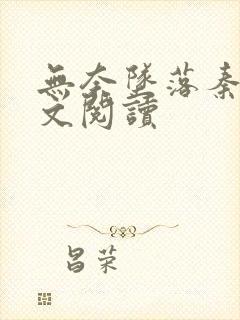 無奈隊落秦
文閱讀
昌荣